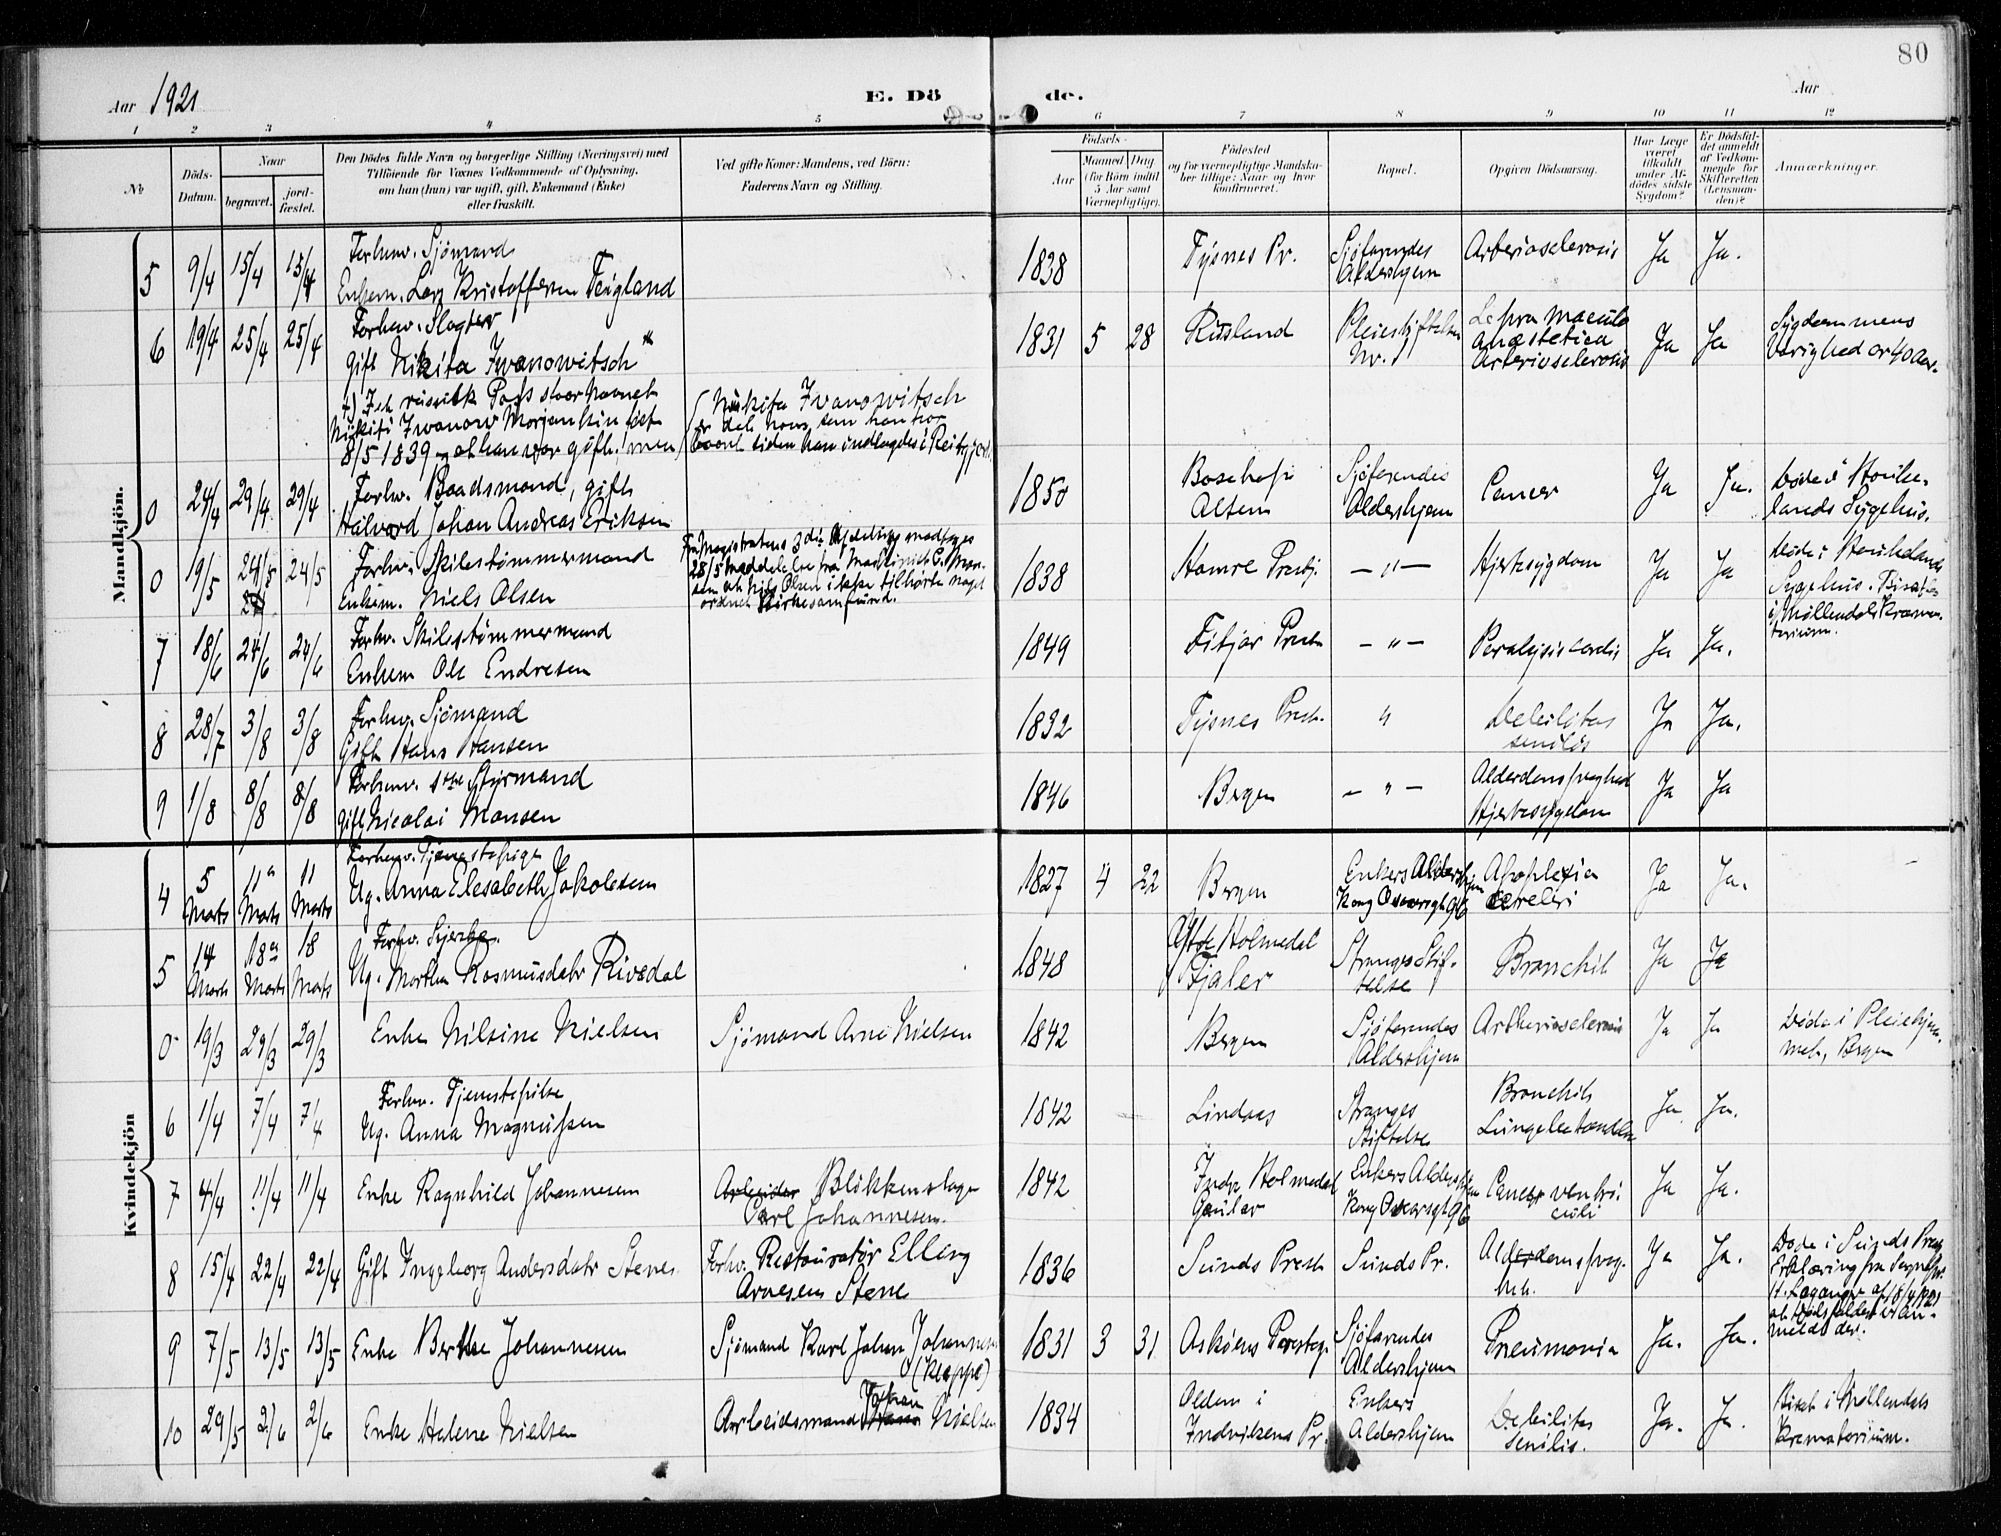 80
Aar 1921
E. Döde.
Aar
1 2 3 4 5 6 7 8 9 10 11 12
No
Döds-Datum.
Naar
begravet.
jordfæstet.
Den Dödes fulde Navn og borgerlige Stilling (Næringsvei) med
Tilföiende for Voxnes Vedkommende af Oplysning,
om han (hun) var ugift, gift, Enkemand (Enke)
eller fraskilt.
Ved gifte Koner: Mandens, ved Börn:
Faderens Navn og Stilling.
Födsels-
Aar
Maaned Dag
(for Börn indtil
5 Aar samt
Værnepligtige).
Födested
og for værnepligtige Mandskaber tillige: Naar og hvor
konfirmeret.
Bopæl.
Opgiven Dödsaarsag.
Har Læge
været
tilkaldt
under Afdödes sidste
Sygdom?
Er Dödsfaldet anmeldt
af Vedkommende for
Skifteretten
(Lensmanden)?
Anmærkninger.
Mandkjön.
5 9/4 15/4 15/4 Forhenv. Sjömand
Enkem. Lars Kristoffersen Teigland
1838 Tysnes Pr. Sjöfarendes
Aldershjem
Arteriosclerosis Ja Ja.
6 19/4 25/4 25/4 Forhenv. Slagter
gift Nikita Iwanowitsch
1831 5 28 Rusland Pleiestiftelsen
Nr. 1
Lepra maculo
anæstetica
Arteriosclerosis
Ja Ja Sygdommens
Varighed er 40 Aar.
I et russisk Pass staar Navnet
Nikiti Iwanow Morjankin föst
8/5 1839 og at han var gift. men
Nikita Ivanowitsch
er det navn, som han har
siden han indlagdes i
0 24/4 29/4 29/4 Forhv. Baadsmand, gift
Halvord Johan Andreas Eriksen
1850 Bosekop
Alten
Sjöfarendes
Aldershjem
Cancer Ja Ja. Döde i Haukelands Sygehus.
0 19/5 24/5 24/5 Forhv. Skibstömmermand
Enkem. Niels Olsen
Fra Magistratens 3die Afdeling modtages
28/5 Meddelelse fra
at Nils Olsen ikke tilhörte noget
ordnet Kirkesamfund.
1838 Hamre Prestgj. — " — Hjertesygdom Ja Ja Döde i Haukelands
Sygehus. Bisat
i Möllendals Krematorium.
7 18/6 24/6 24/6 Forhv. Skibstömmermand
Enkem Ole Endresen
1849 Fitjar Prest. — " — Paralysis cordis Ja Ja.
8 28/7 3/8 3/8 Forhv. Sjömand
Gift Hans Hansen
1832 Tysnes Prest. " Debilitas
senilis
Ja Ja.
9 1/8 8/8 8/8 Forhenv. 1ste Styrmand
Gift Nicolai Monsen
1846 Bergen — " — Alderdomssvaghed
Hjertesygdom
Ja Ja
Kvindekjön
4 5 Marts 11 Marts 11 Marts Forhenv. Tjenestepige
Ug. Anna Elesabeth Jakobsen
1827 4 22 Bergen Enkers Aldershjem
Kong Oscarsgt 96
Apoplexia
cerebri
Ja Ja.
5 14 Marts 18 Marts 18 Marts Forhv. Syerske.
Ug. Marthe Rasmusdatr Rivedal
1848 Ytre Holmedal
Fjaler
Stranges Stiftelse
Bronchit Ja Ja
0 19/3 29/3 29/3 Enke Nilsine Nielsen Sjömand Arne Nielsen
1842 Bergen Sjöfarendes
Aldershjem
Artheriosclerosis Ja Ja Döde i Pleiehjemmet, Bergen
6 1/4 7/4 7/4 Forhv. Tjenestepike
Ug. Anna Magnussen
1842 Lindaas Stranges
Stiftelse
Bronchit
Lungebetændelse
Ja Ja.
7 4/4 11/4 11/4 Enke Ragnhild Johannesen Arbeider Blikkenslager
Carl Johannesen.
1842 Indre Holmedal
Gaular
Enkers Aldershjem
Kong Oscarsgt 96
Cancer ventriculi
Ja Ja.
8 15/4 22/4 22/4 Gift Ingeborg Andersdatr Stenes Forhv. Restauratør Elling
Arnesen Stene
1836 Sunds Prest. Sunds Pr. Alderdomssvaghed.
Ja Ja. Döde i Sunds Prest.
Erklæring fra Sogneprest
af 18/4 1921
at Dödsfaldet er anmeldt der.
9 7/5 13/5 13/5 Enke Berthe Johannesen Sjömand Karl Johan Johannesen
(Kleppe)
1831 3 31 Askøens Prestegj. Sjöfarendes
Aldershjem
Pneumonia Ja. Ja.
10 29/5 2/6 2/6 Enke Helene Nielsen Arbeidsmand Johan Nielsen
1834 Olden i
Indvikens Pr.
Enkers
Aldershjem
Debilitas
senilis.
Ja. Ja. Bisat i Möllendals
Krematorium.